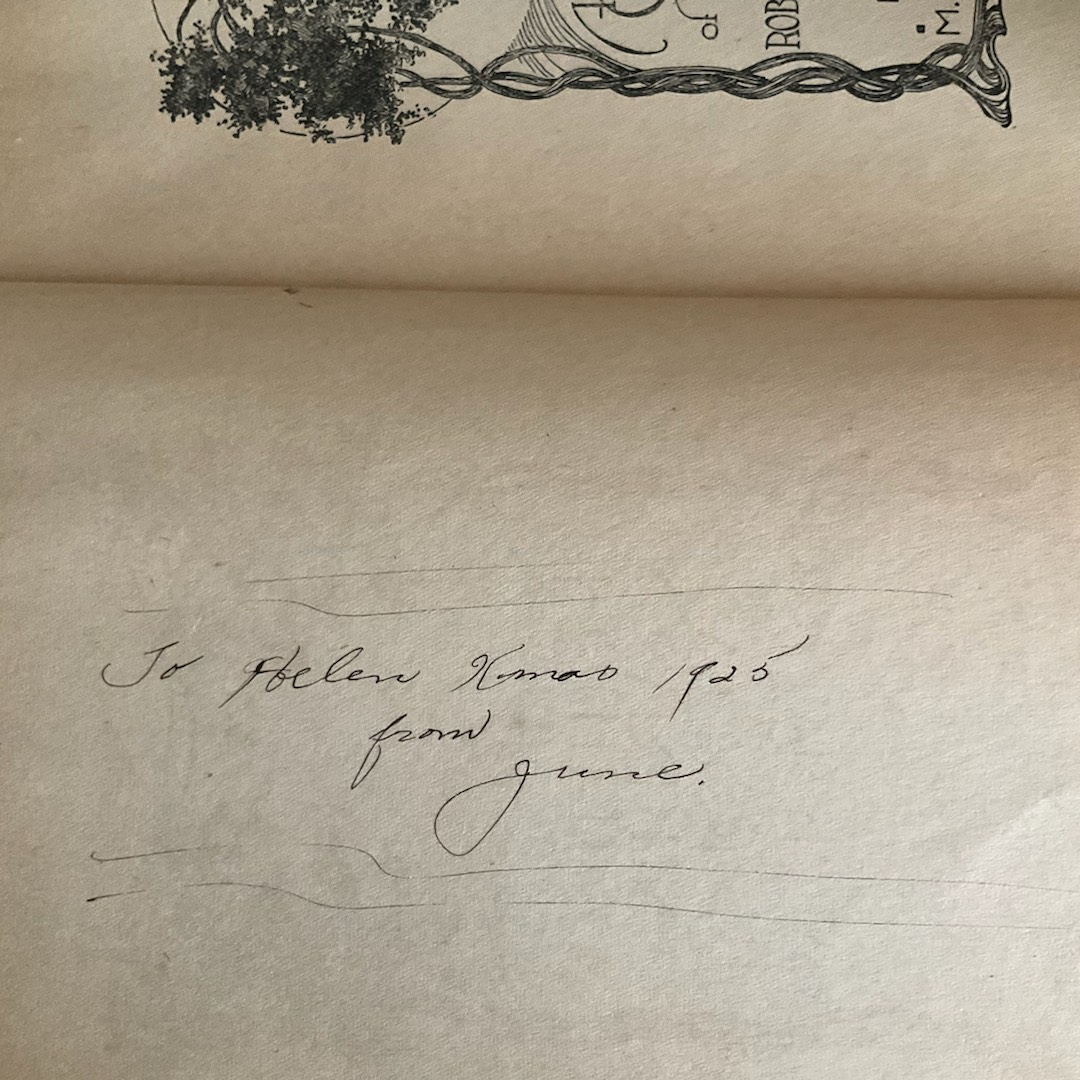 of
ROB
M.
To Helen Xmas 1925
from
June.